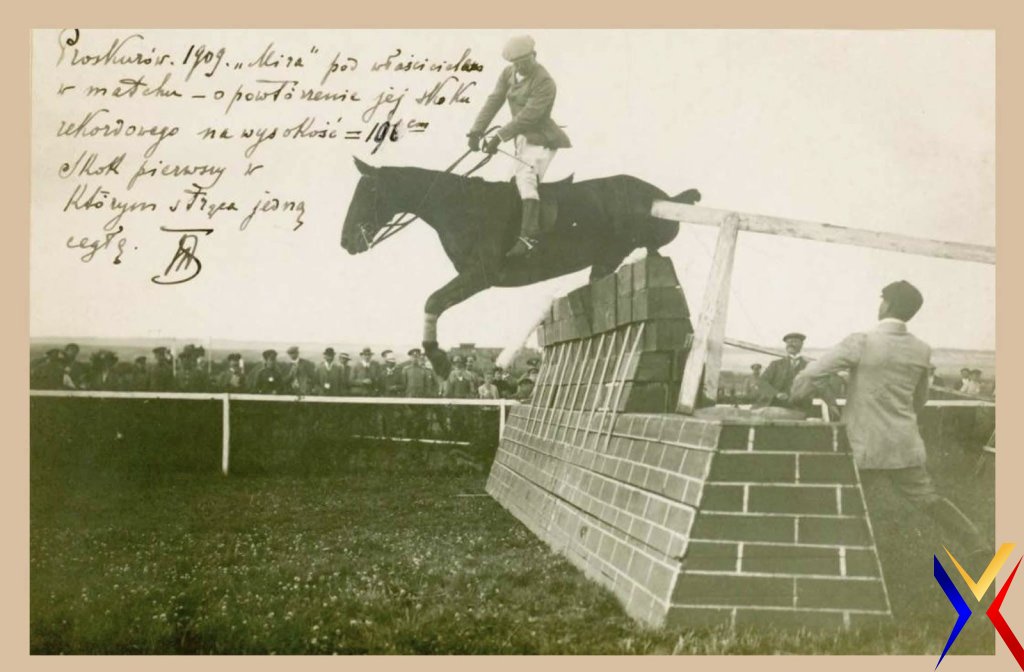 Proskurów. 1909. „Mira" pod właścicielem
w matchu – o powtórzenie jej skoku
rekordowego na wysokość = 196 cm
Skok pierwszy w
którym strąca jedną
cegłę.